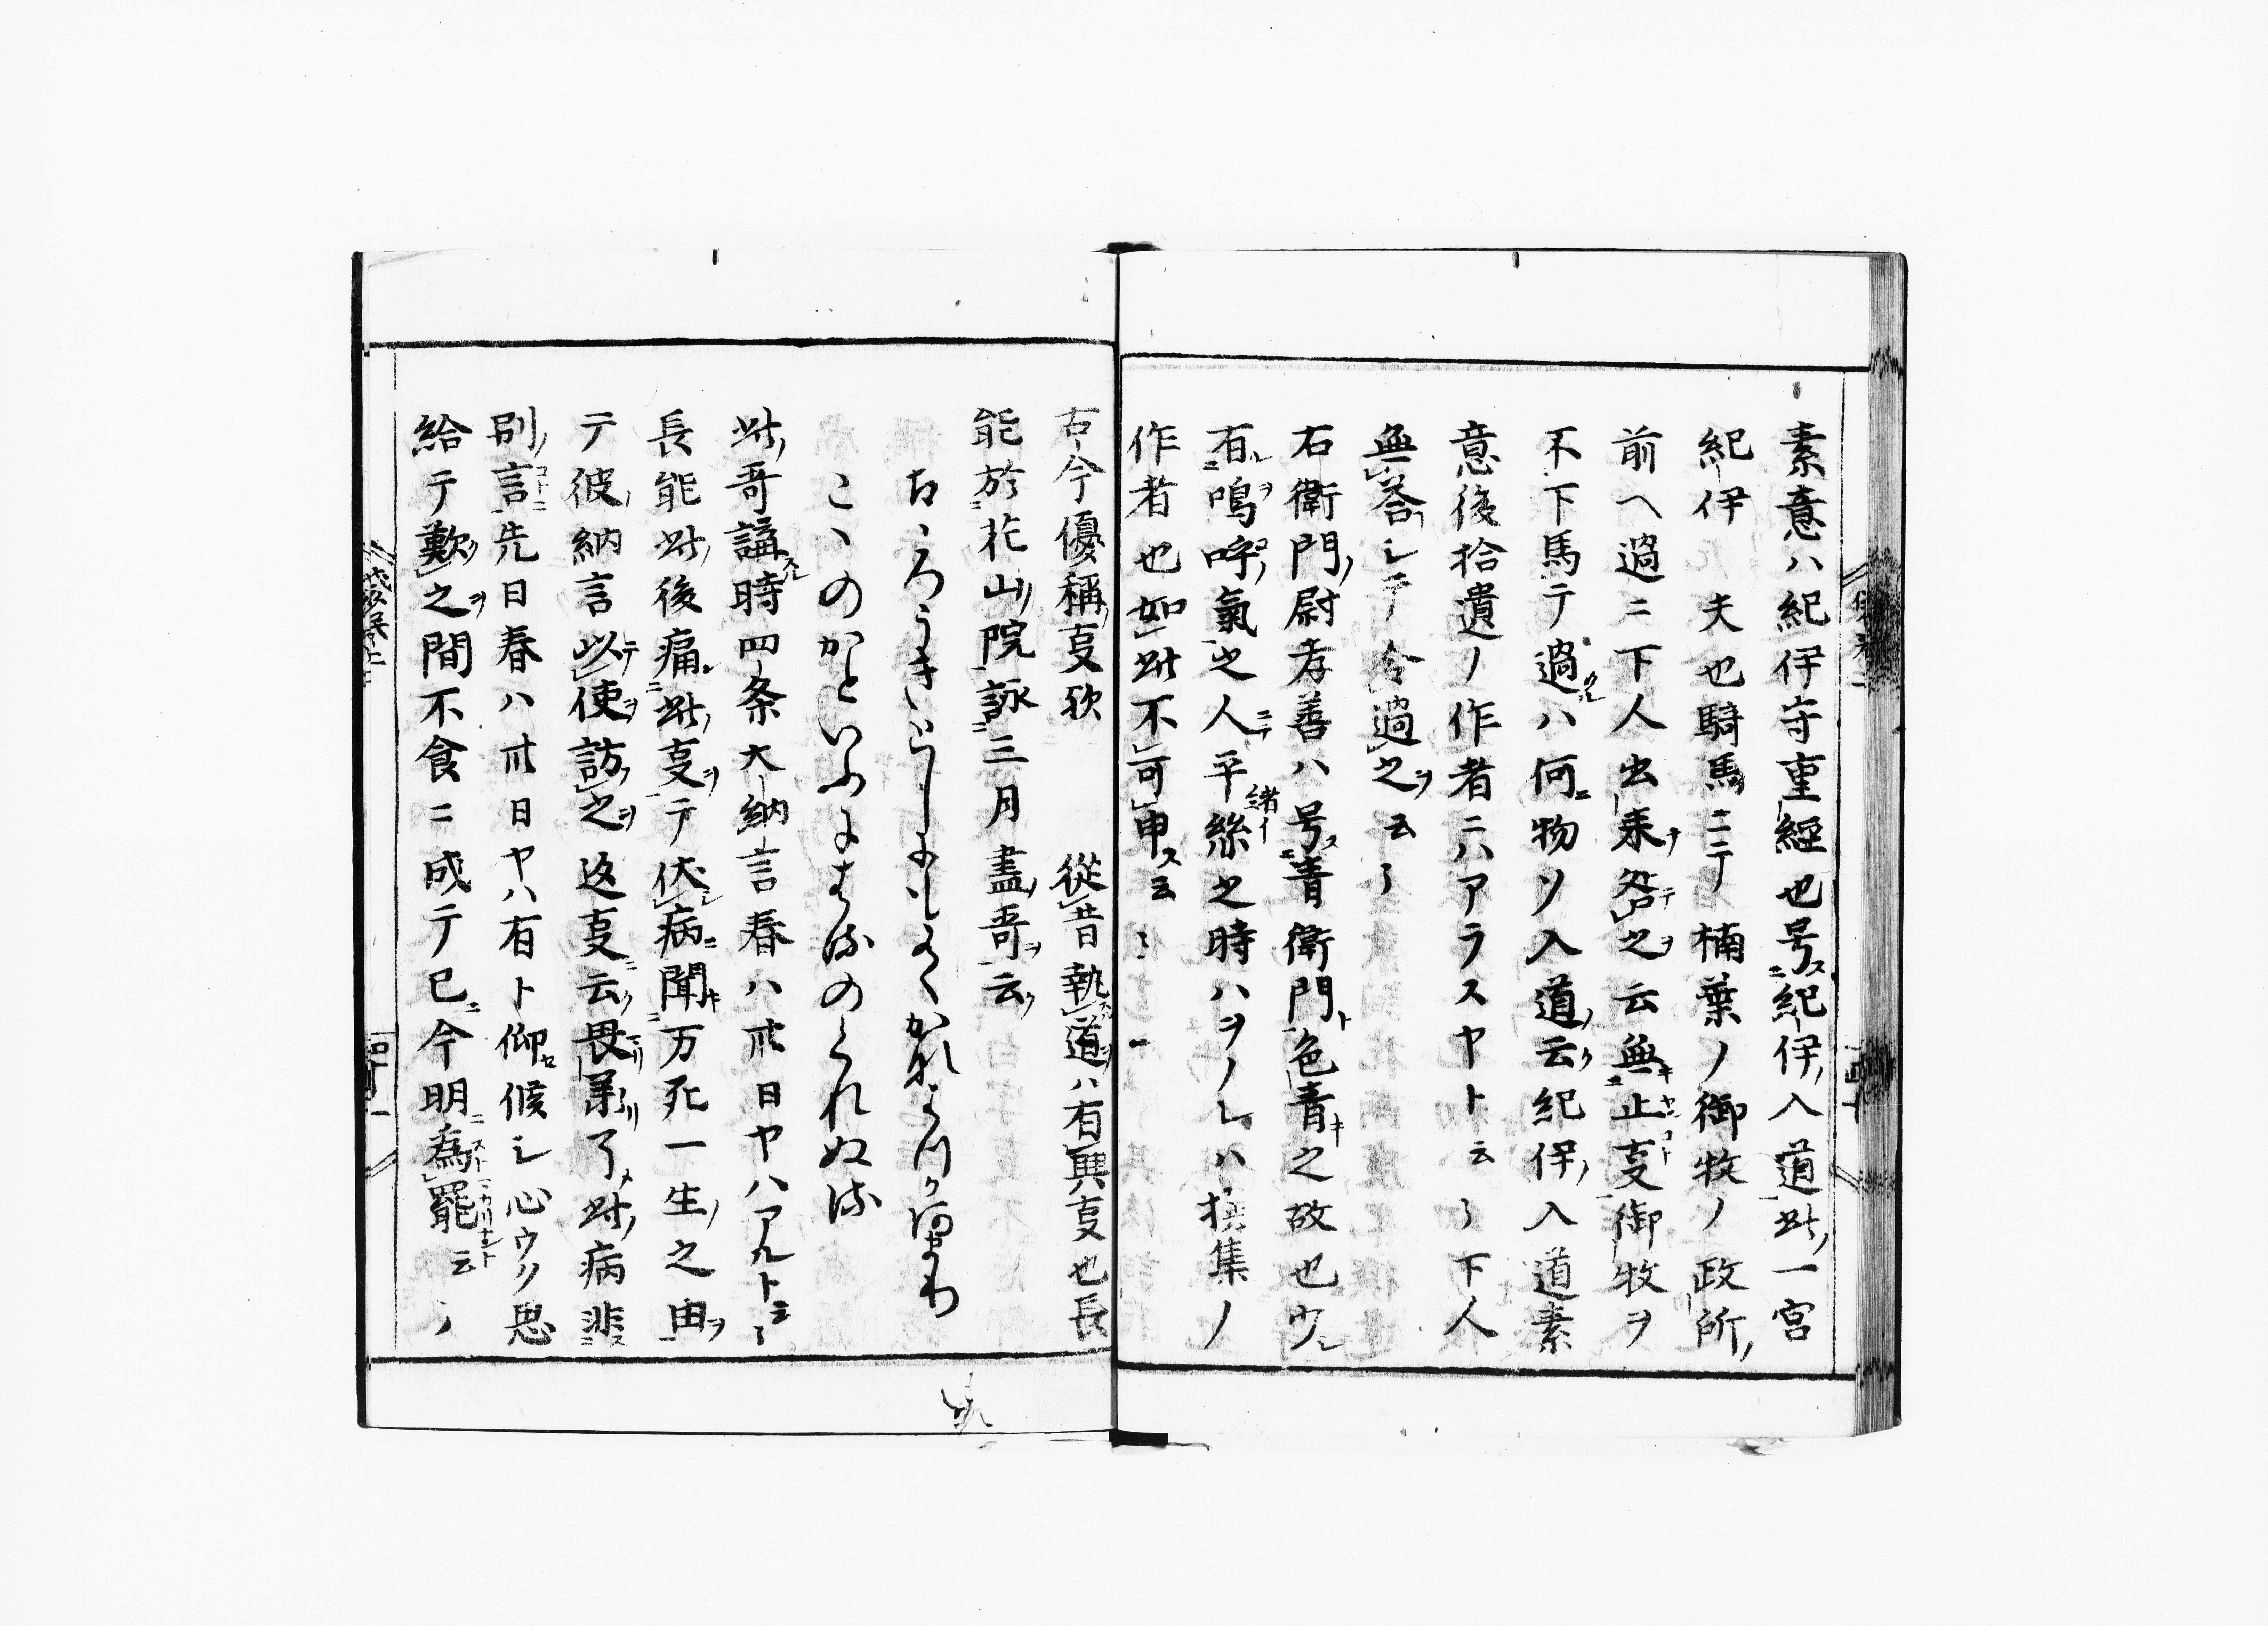 素意ハ紀伊守重經也号ス紀伊入道此一宮
紀伊 夫也騎馬ニテ楠葉ノ御牧ノ政所
前ヘ過ニ下人出来テ咎之ヲ云無止事御牧ヲ
不下馬テ過ルハ何物ソ入道云ク紀伊入道素
意後拾遺ノ作者ニハアラスヤト云々下人
無答シテ令過之ヲ云々
右衛門尉孝善ハ号ス青衛門ト色青キ之故也少シ
有嗚呼氣之人ニテ平絲之時ハヲノレハ撰集ノ
緒イ
作者也如此不可申ス云々
古今優稱事歟 從昔執道ヲハ有興事也長
能於花山院詠三月盡哥ヲ云ク
こゝのかといふに春のくれぬる
此哥講スル時四条大納言春ハ卅日ヤハアルト云々
長能此後痛此事ヲテ伏病聞万死一生之由ヲ
テ彼納言以使ヲ訪之ヲ返事云ク畏承了此病非
別言先日春ハ卅日ヤハ有ト仰セ候シ心ウツ思
給テ歎之ヲ間不食ニ成テ已今明為罷云々